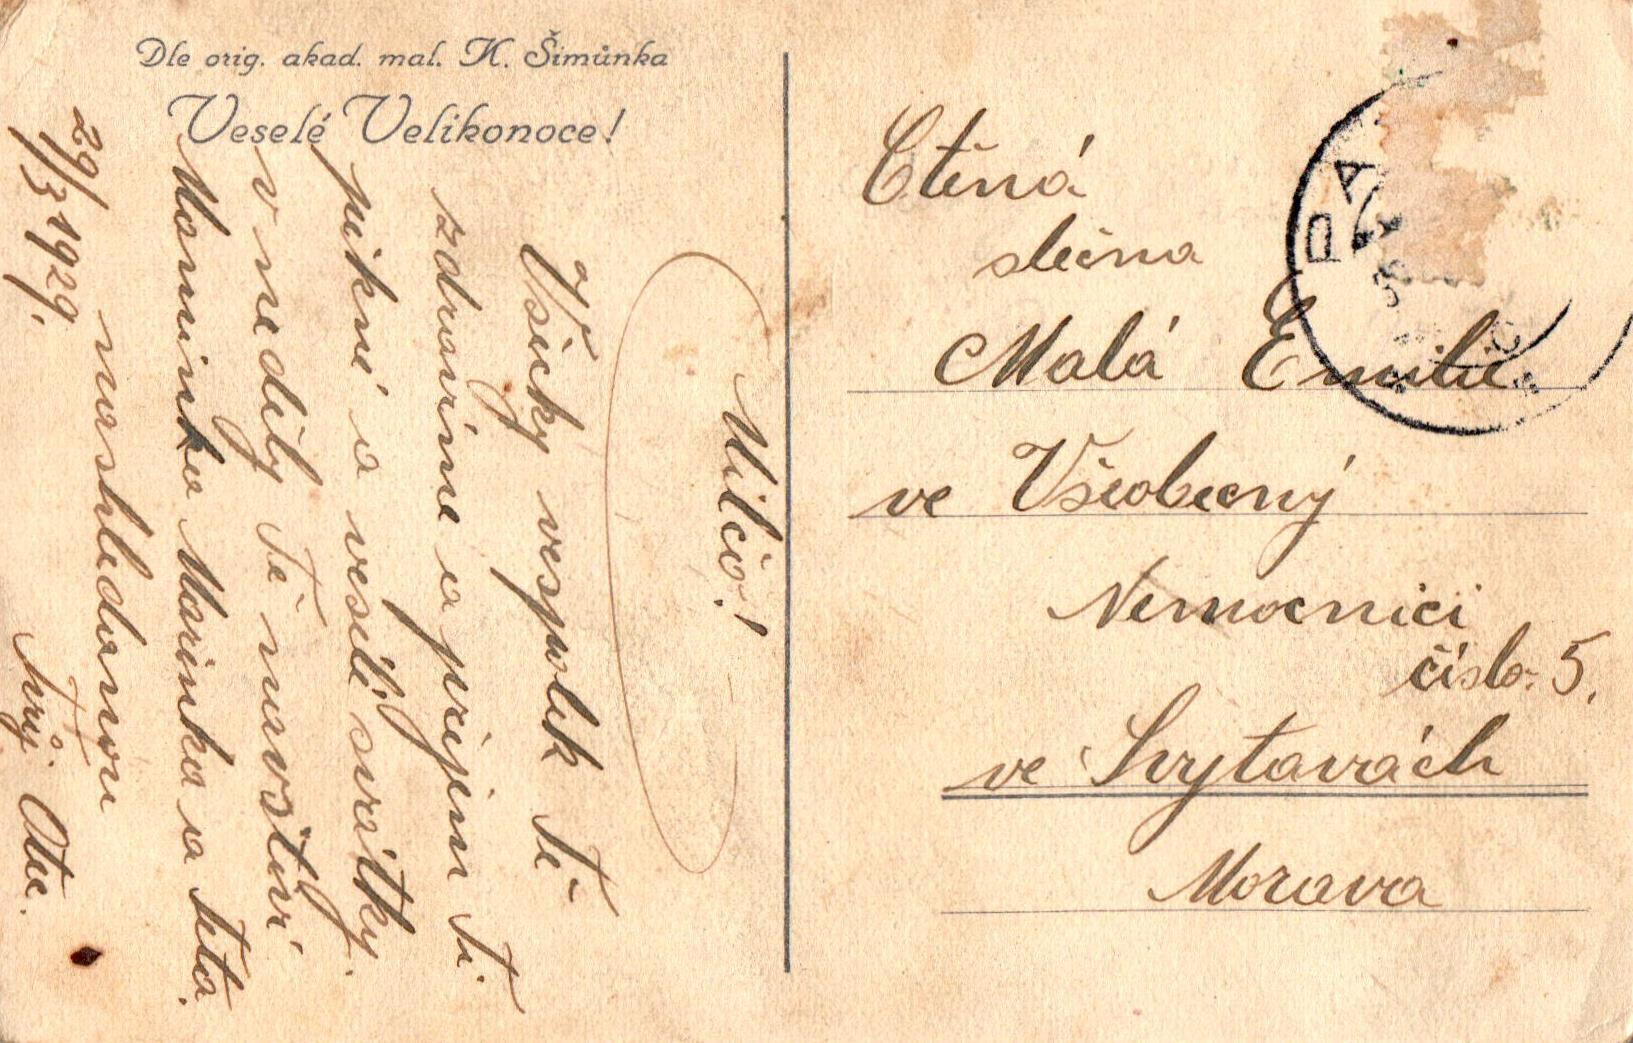 Dle orig. akad. mal. K. Šimůnka
Veselé Velikonoce!
29/3 1929.
Milčo!
Všicky vespolek Tě
zdravíme a přejem Ti
pikné a veselé svátky.
v neděly Tě navštíví
Maminka Marinka a teta.
nashledanou
Tvůj Otec.
Ctěná
slečna
Malá Emilie
ve Všeobecný
Nemocnici
číslo. 5.
ve Svytavách
Morava
PRA